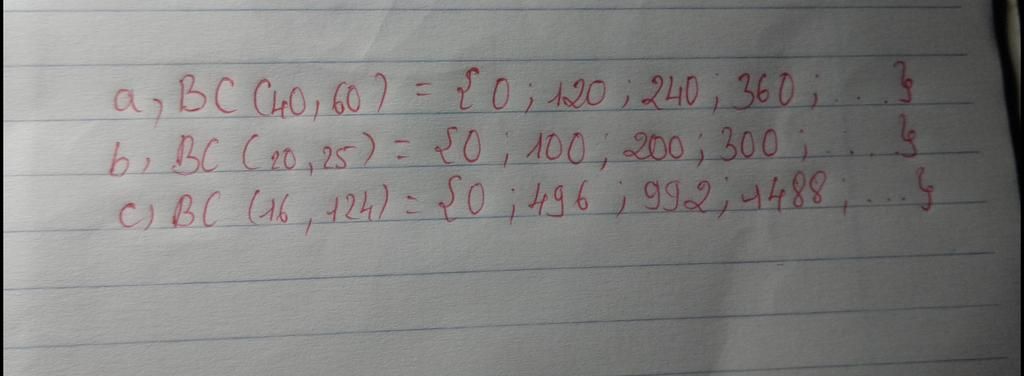 a, BC (40, 60) = {0 ; 120 ; 240 ; 360 ; .... }
b, BC (20, 25) = {0 ; 100 ; 200 ; 300 ; .... }
c, BC (16, 124) = {0 ; 496 ; 992 ; 1488 ; ... }